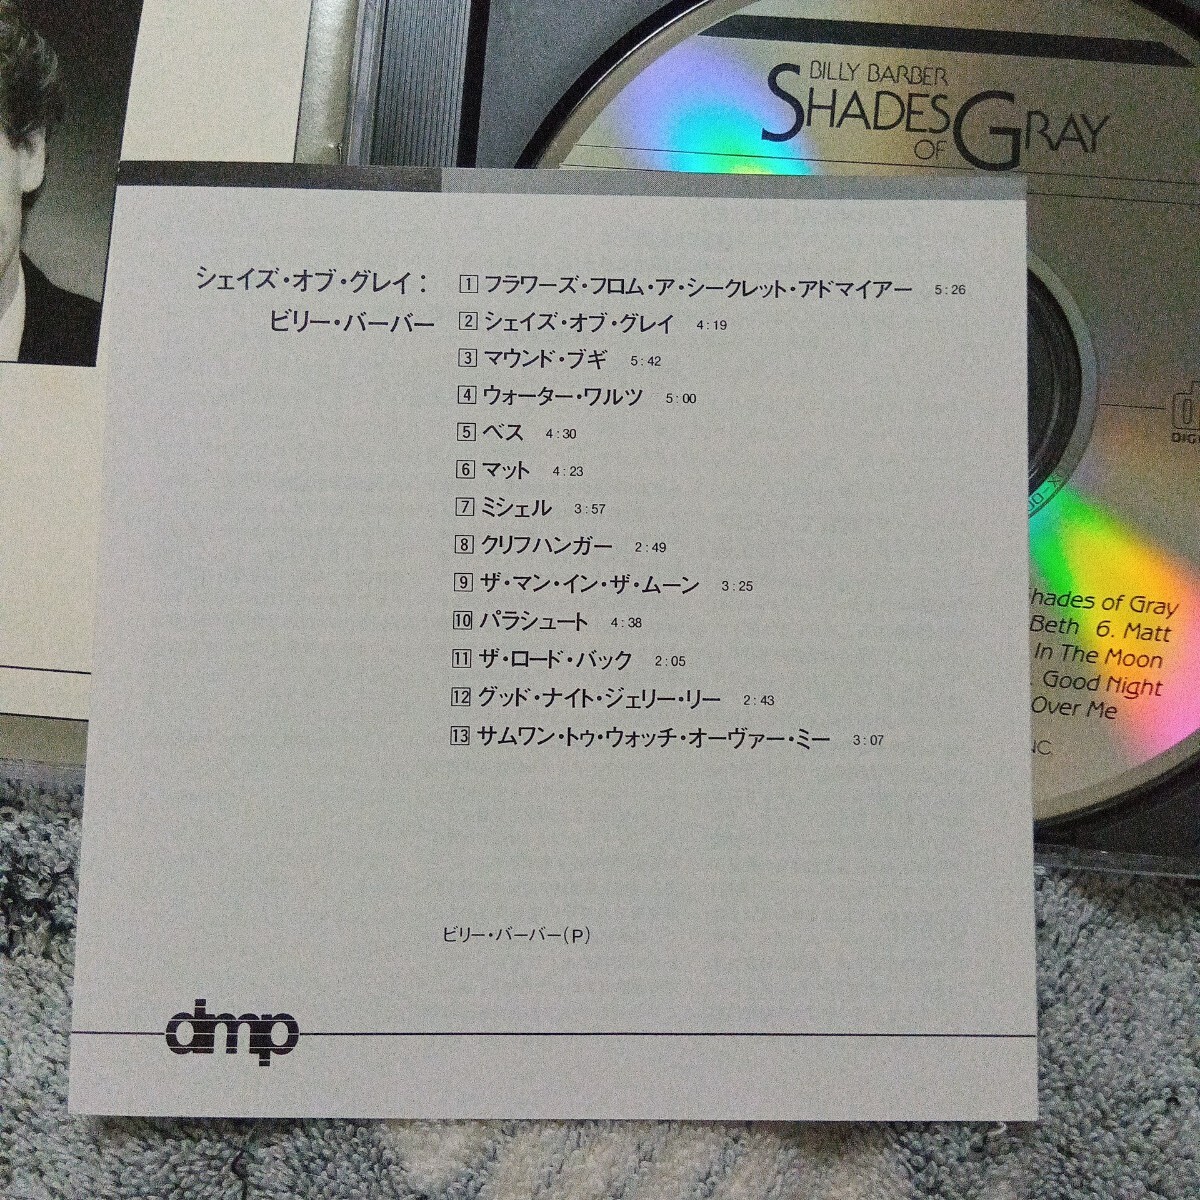 BILLY BARBER
SHADES
OF GRAY
シェイズ・オブ・グレイ：
ビリー・バーバー
1 フラワーズ・フロム・ア・シークレット・アドマイアー 5:26
2 シェイズ・オブ・グレイ 4:19
3 マウンド・ブギ 5:42
4 ウォーター・ワルツ 5:00
5 ベス 4:30
6 マット 4:23
7 ミシェル 3:57
8 クリフハンガー 2:49
9 ザ・マン・イン・ザ・ムーン 3:25
10 パラシュート 4:38
11 ザ・ロード・バック 2:05
12 グッド・ナイト・ジェリー・リー 2:43
13 サムワン・トゥ・ウォッチ・オーヴァー・ミー 3:07
ビリー・バーバー(P)
dmp
hades of Gray
Beth 6. Matt
In The Moon
. Good Night
Over Me